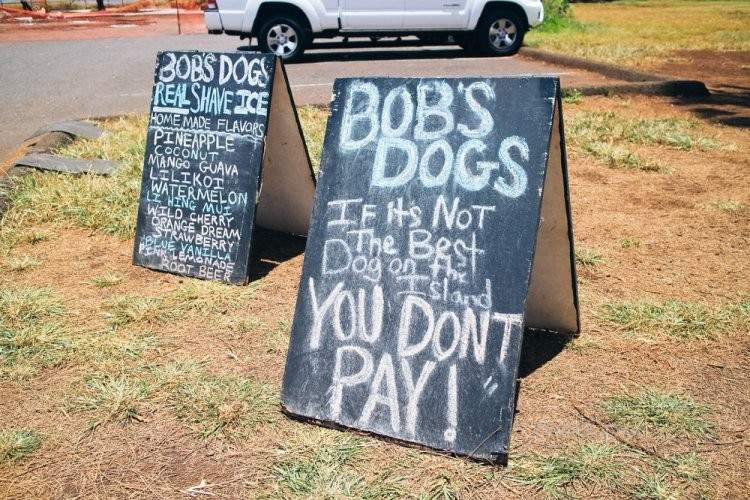 BOB'S DOGS
REAL SHAVE ICE
HOME MADE FLAVORS
PINEAPPLE
COCONUT
MANGO GUAVA
LILIKOI
WATERMELON
LI HING MUI
WILD CHERRY
ORANGE DREAM
STRAWBERRY
BLUE VANILLA
PINK LEMONADE
ROOT BEER
BOB'S
DOGS
IF ITS NOT
THE BEST
DOG ON THE
ISLAND
YOU DONT
PAY! "